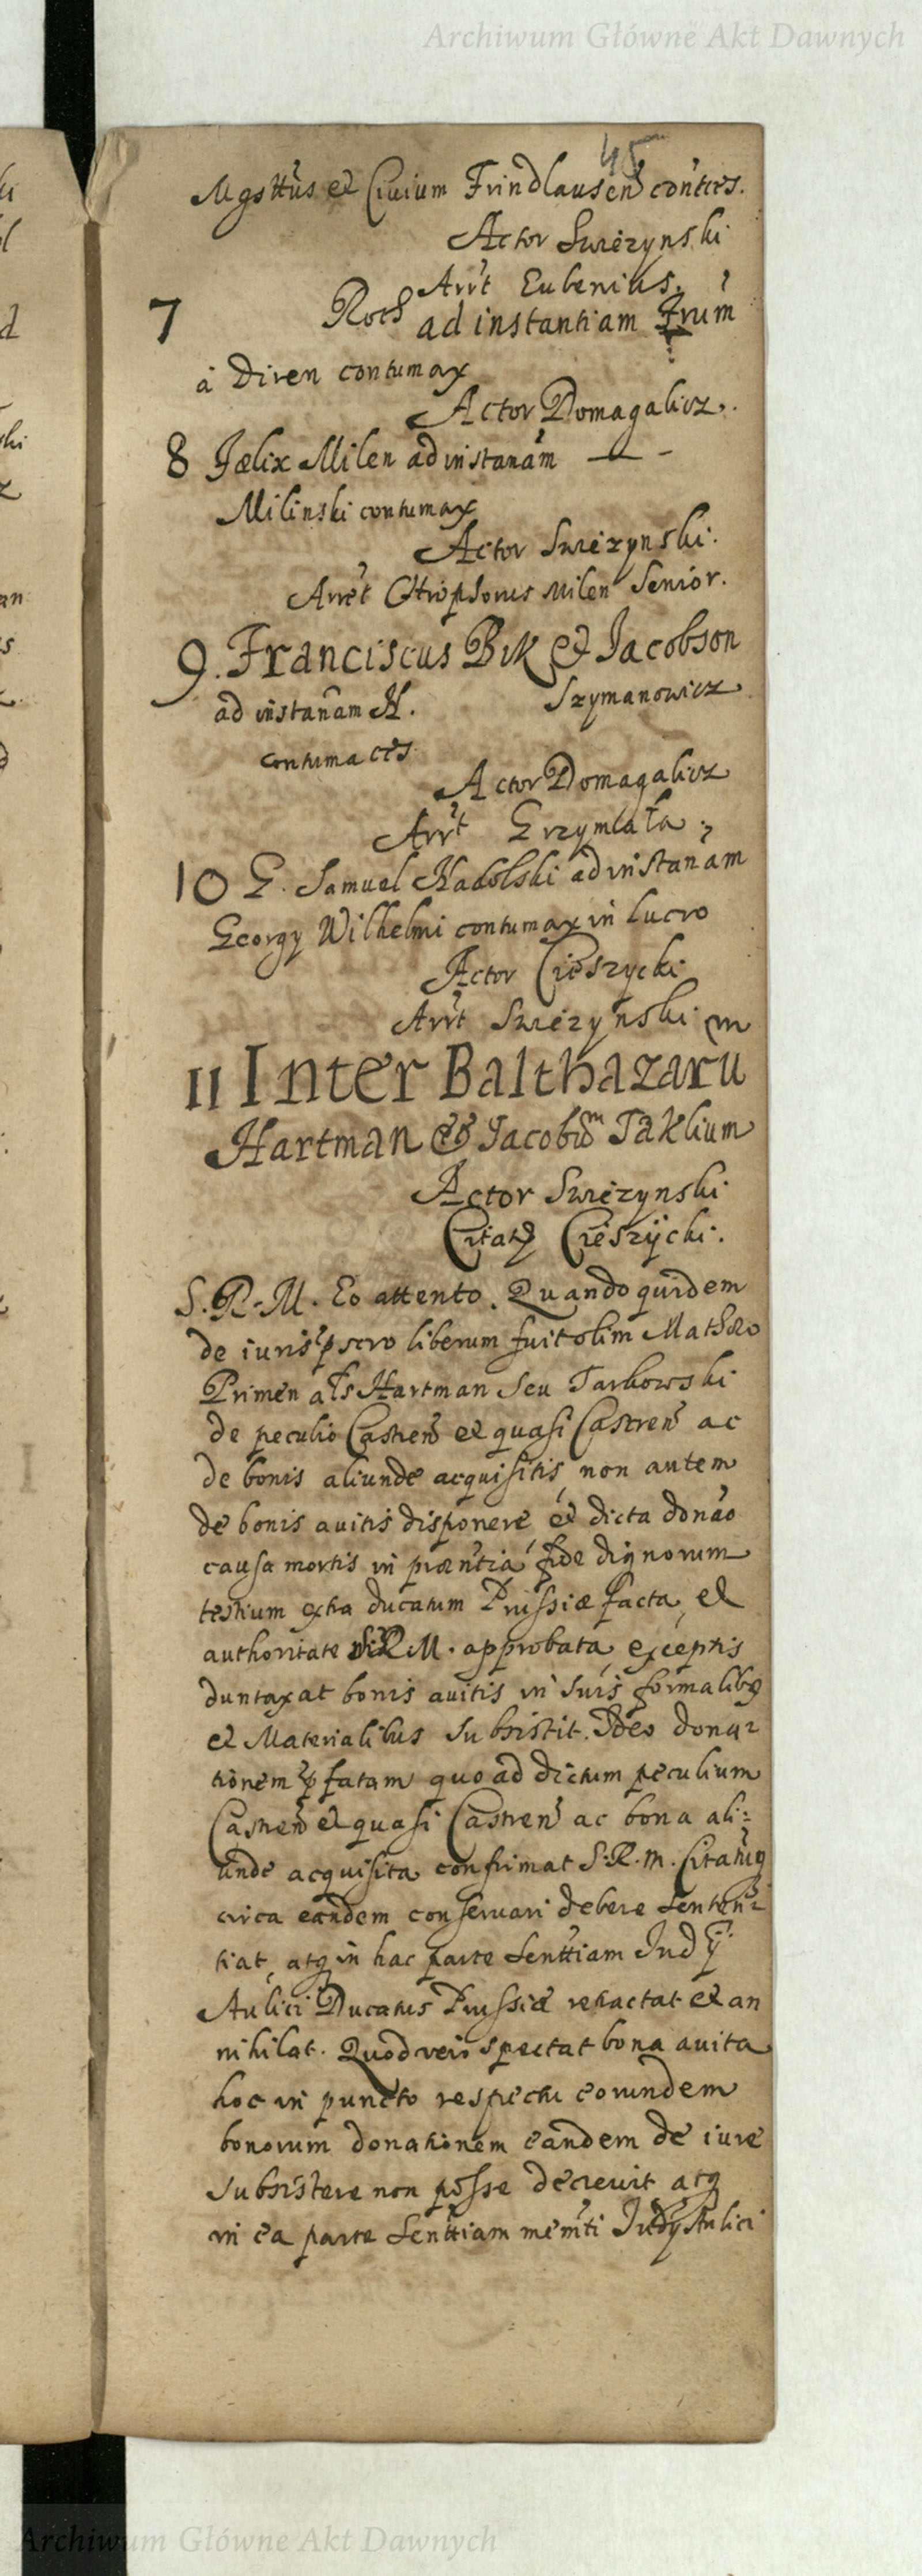 Archiwum Główne Akt Dawnych
45
Mgsttus et Civium Frindlausen conties.
Actor Swiezynski
Arrt Eubenius.
7 Roch ad instantiam Frum
à Diren contumax
Actor Domagalicz.
8 Fælix Milen ad instanam
Milinski contumax
Actor Swiezynski.
Arret Chrisphorus Milen Senior.
9. Franciscus Bik & Jacobson
ad instanam H. Szymanowicz
contumaces
Actor Domagalicz
Arrt Grzymlała
10 G. Samuel Hadolski ad instanam
Georgy Wilhelmi contumax in lucro
Actor Cieszycki
Arrt Swiezynski m
11 Inter Balthazaru
Hartman & Jacobum Taklium
Actor Swiezynski
Citatq Cieszÿcki.
S.R.M. Eo attento. Quandoquidem
de iuris pscro liberum fuit olim Mathæo
Primen als Hartman Seu Tarkowski
de peculio Castren et quasi Castren ac
de bonis aliunde acquisitis, non autem
de bonis avitis disponere, et dicta donao
causa mortis in præntia fide dignorum
testium extra ducatum Prussiæ facta, et
authoritate S.R.M. approbata, exceptis
duntaxat bonis avitis in suis formalibq
et Materialibus subsistit. Ideo dona-
tionem pfatam quo ad dictum peculium
Castren et quasi Castren ac bona ali=
unde acquisita confirmat S.R.M. Citatuq
circa eandem conservari debere senten-
tiat, atq in hac parte senttiam Judÿ
Aulici Ducatus Prussiæ retractat et an
nihilat. Quod vero spectat bona avita
hoc in puncto respectu eorundem
bonorum donationem eandem de iure
subsistere non posse decrevit atq
in ea parte senttiam memti Judÿ Aulici
Archiwum Główne Akt Dawnych